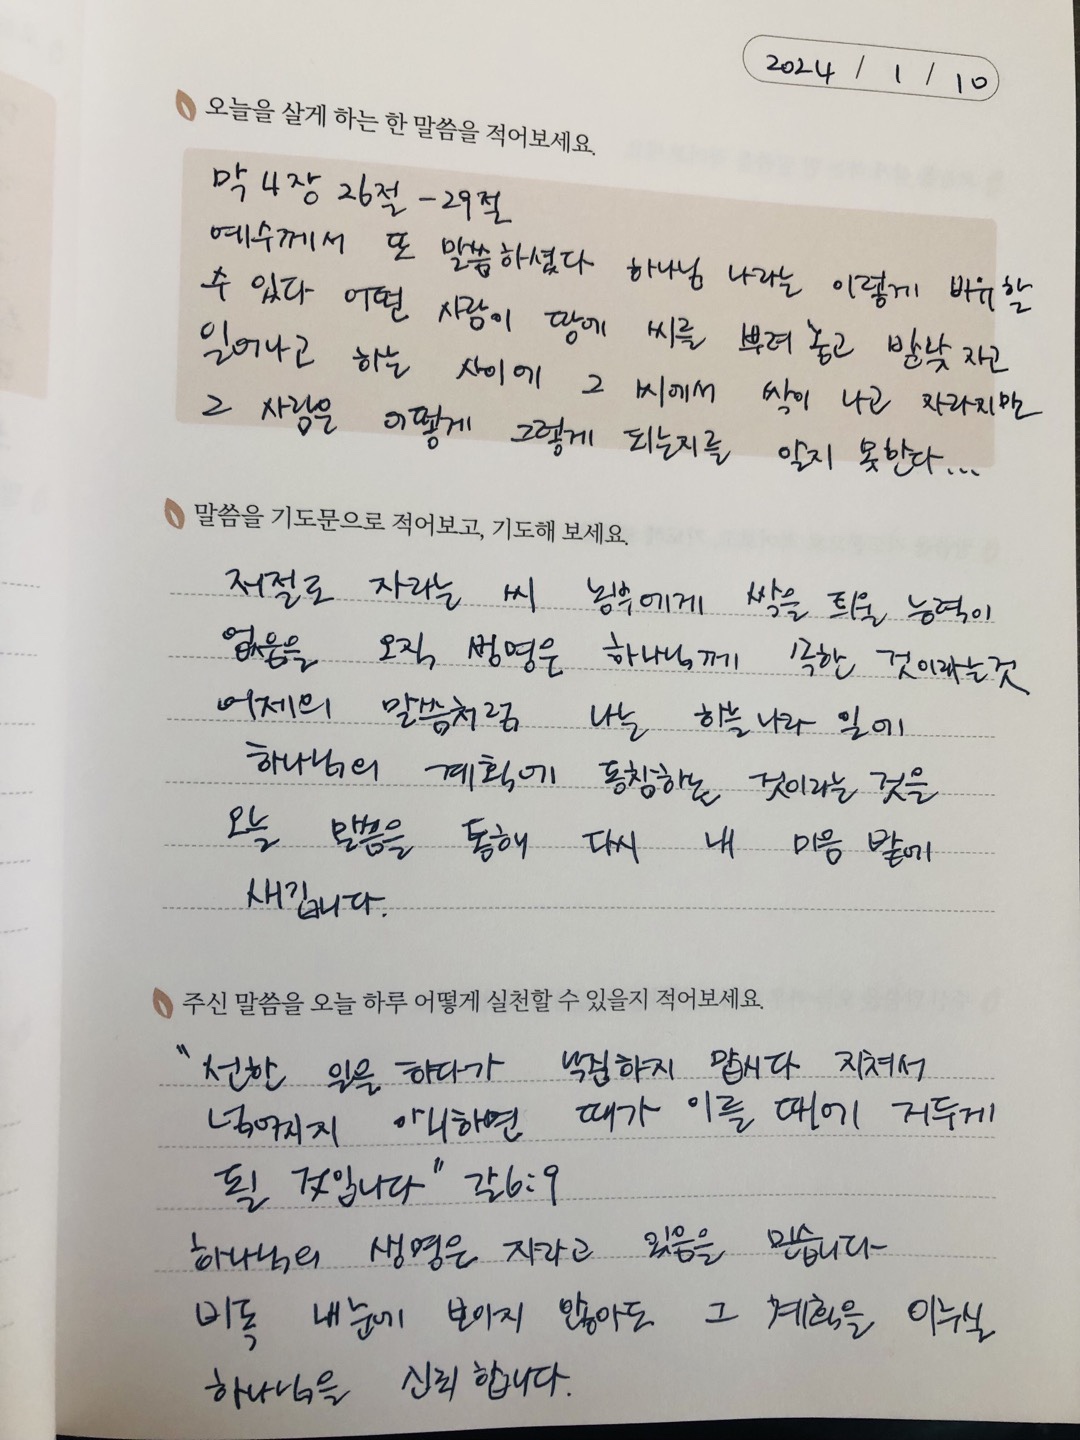 2024 / 1 / 10
오늘을 살게 하는 한 말씀을 적어보세요.
막 4장 26절 -29절
예수께서 또 말씀하셨다 하나님 나라는 이렇게 비유할
수 있다 어떤 사람이 땅에 씨를 뿌려 놓고 밤낮 자고
일어나고 하는 사이에 그 씨에서 싹이 나고 자라지만
그 사람은 어떻게 그렇게 되는지를 알지 못한다...
말씀을 기도문으로 적어보고, 기도해 보세요.
저절로 자라는 씨 농부에게 싹을 틔울 능력이
없음을 오직 생명은 하나님께 속한 것이라는것
어제의 말씀처럼 나는 하늘나라 일에
하나님의 계획에 동참하는 것이라는 것을
오늘 말씀을 통해 다시 내 마음 밭에
새깁니다.
주신 말씀을 오늘 하루 어떻게 실천할 수 있을지 적어보세요.
"선한 일을 하다가 낙심하지 맙시다 지쳐서
넘어지지 아니하면 때가 이를 때에 거두게
될 것입니다" 갈6:9
하나님의 생명은 자라고 있음을 믿습니다
비록 내눈에 보이지 않아도 그 계획을 이루실
하나님을 신뢰합니다.